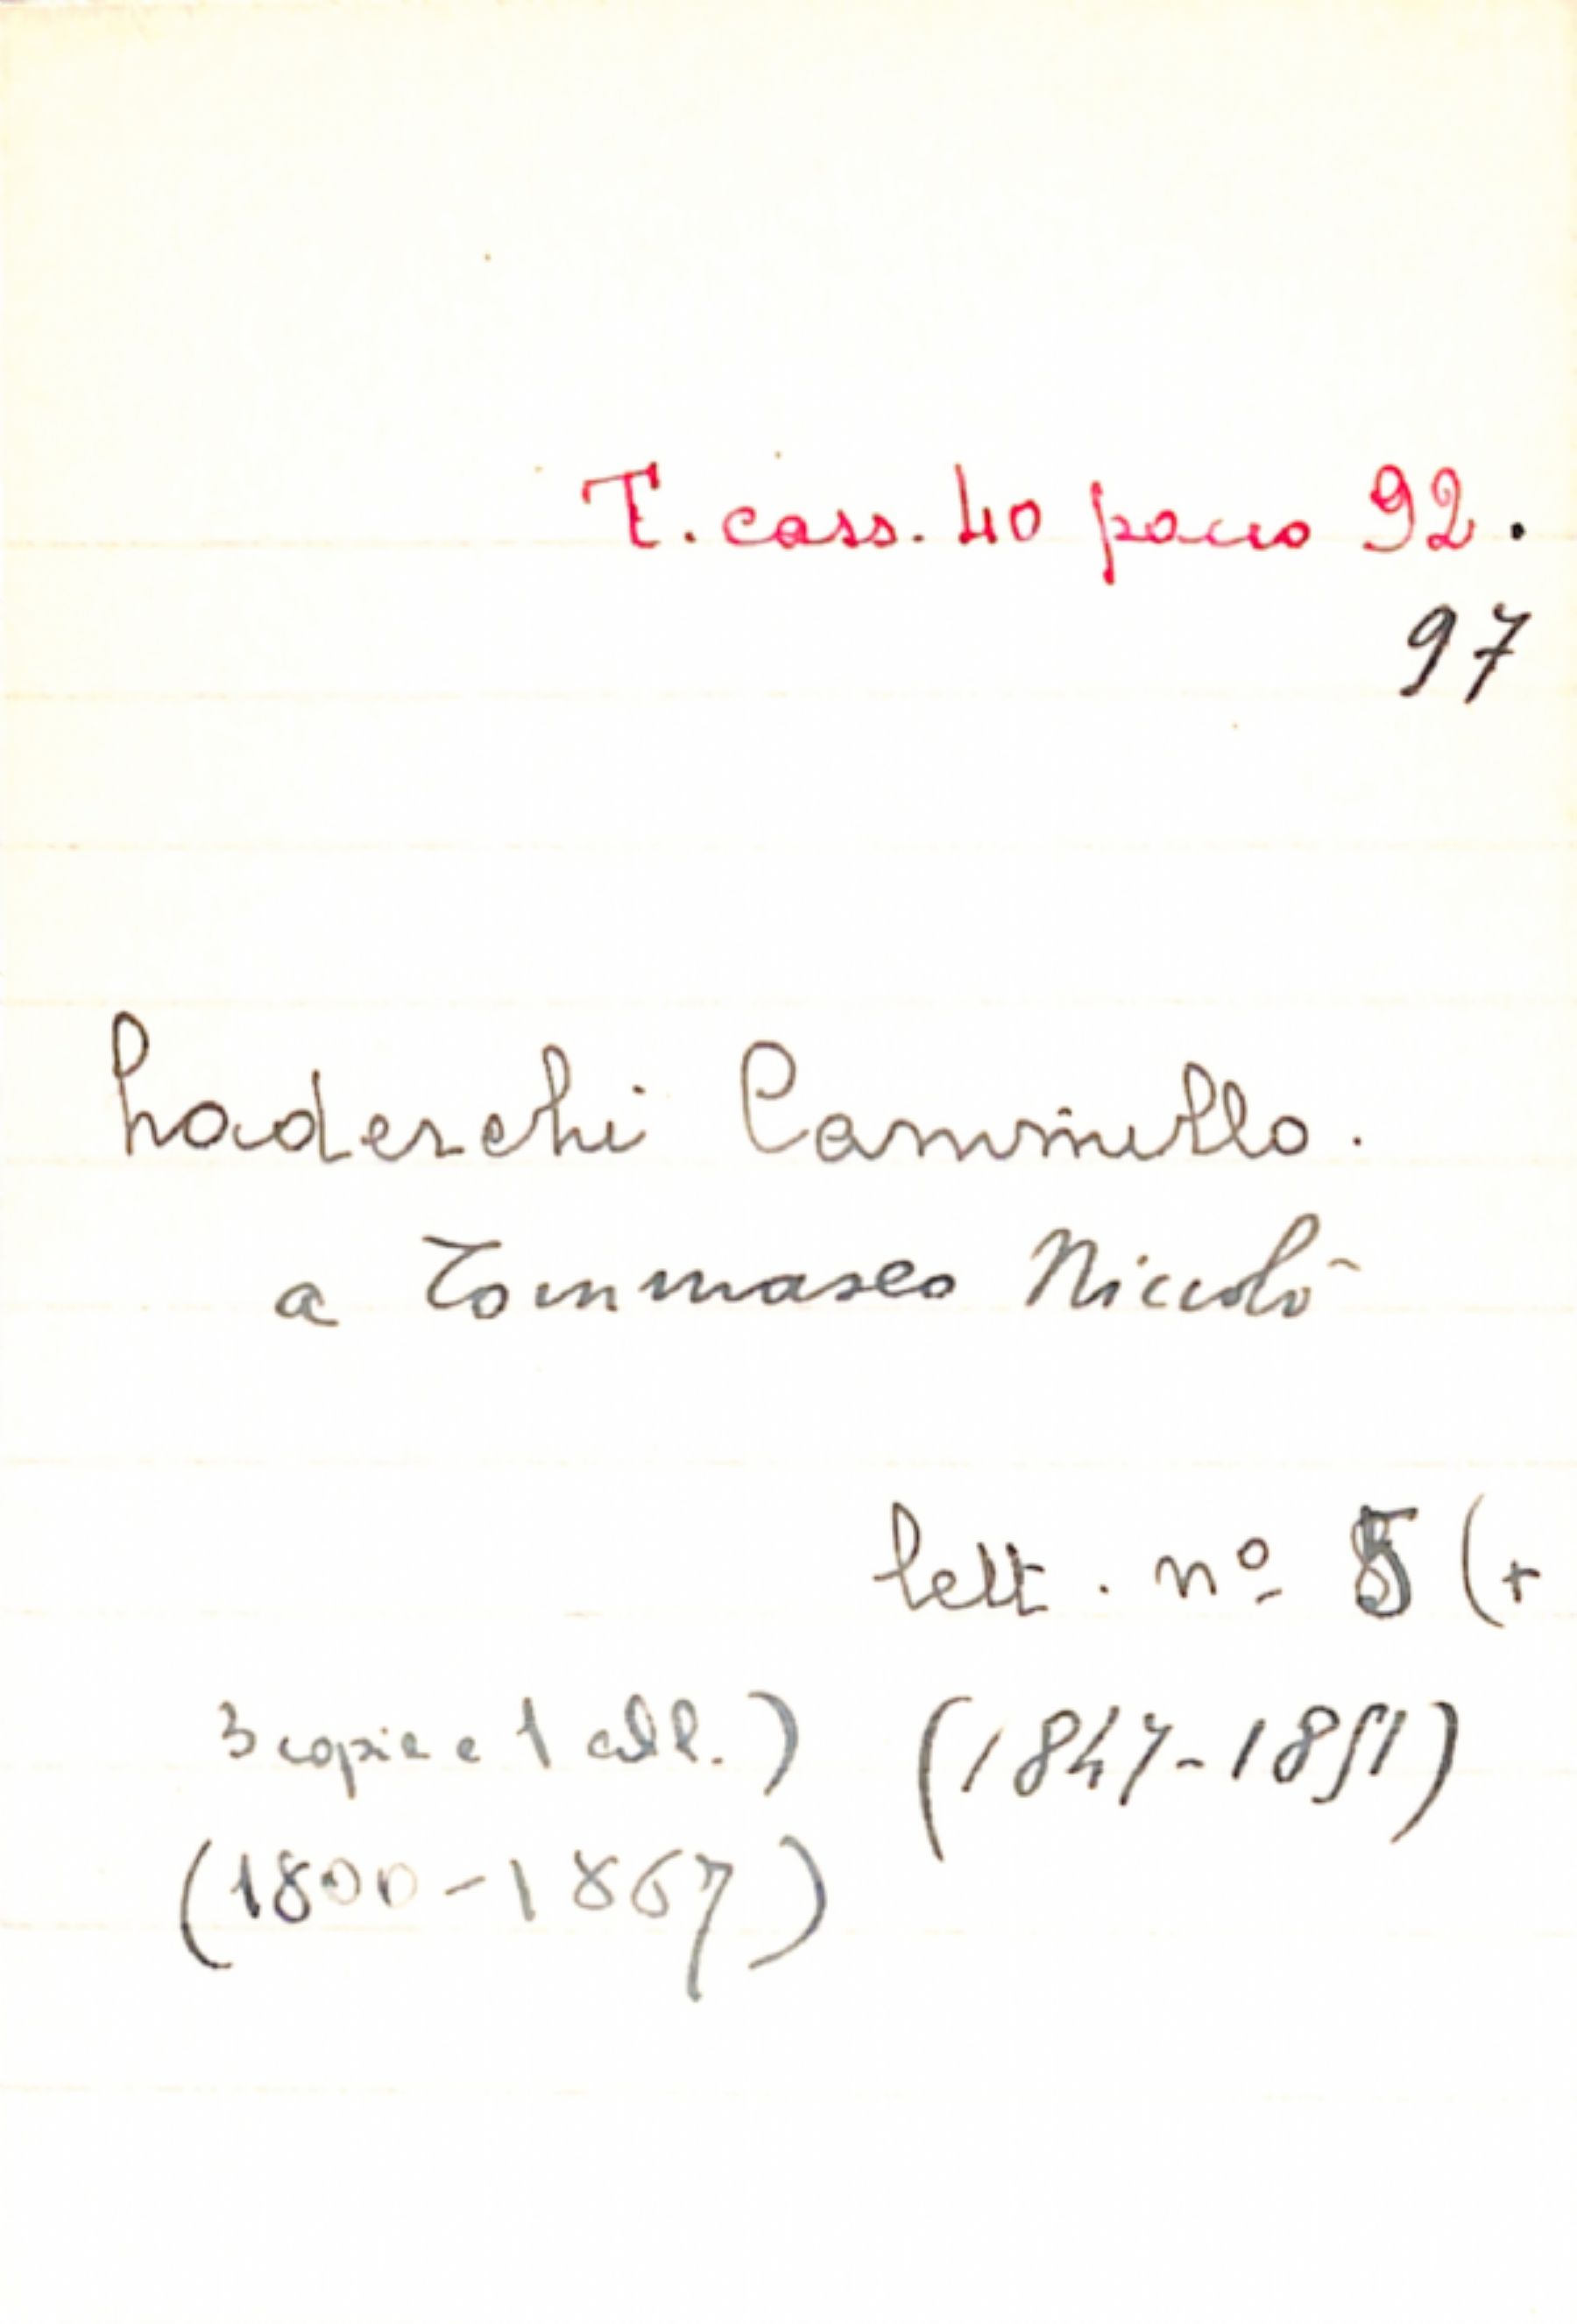 T. cass. 40 pacco 92.
97
Laderchi Cammillo.
a Tommaseo Niccolò
lett. nº 5 (+
3 copie e 1 all.) (1847-1851)
(1800-1867)